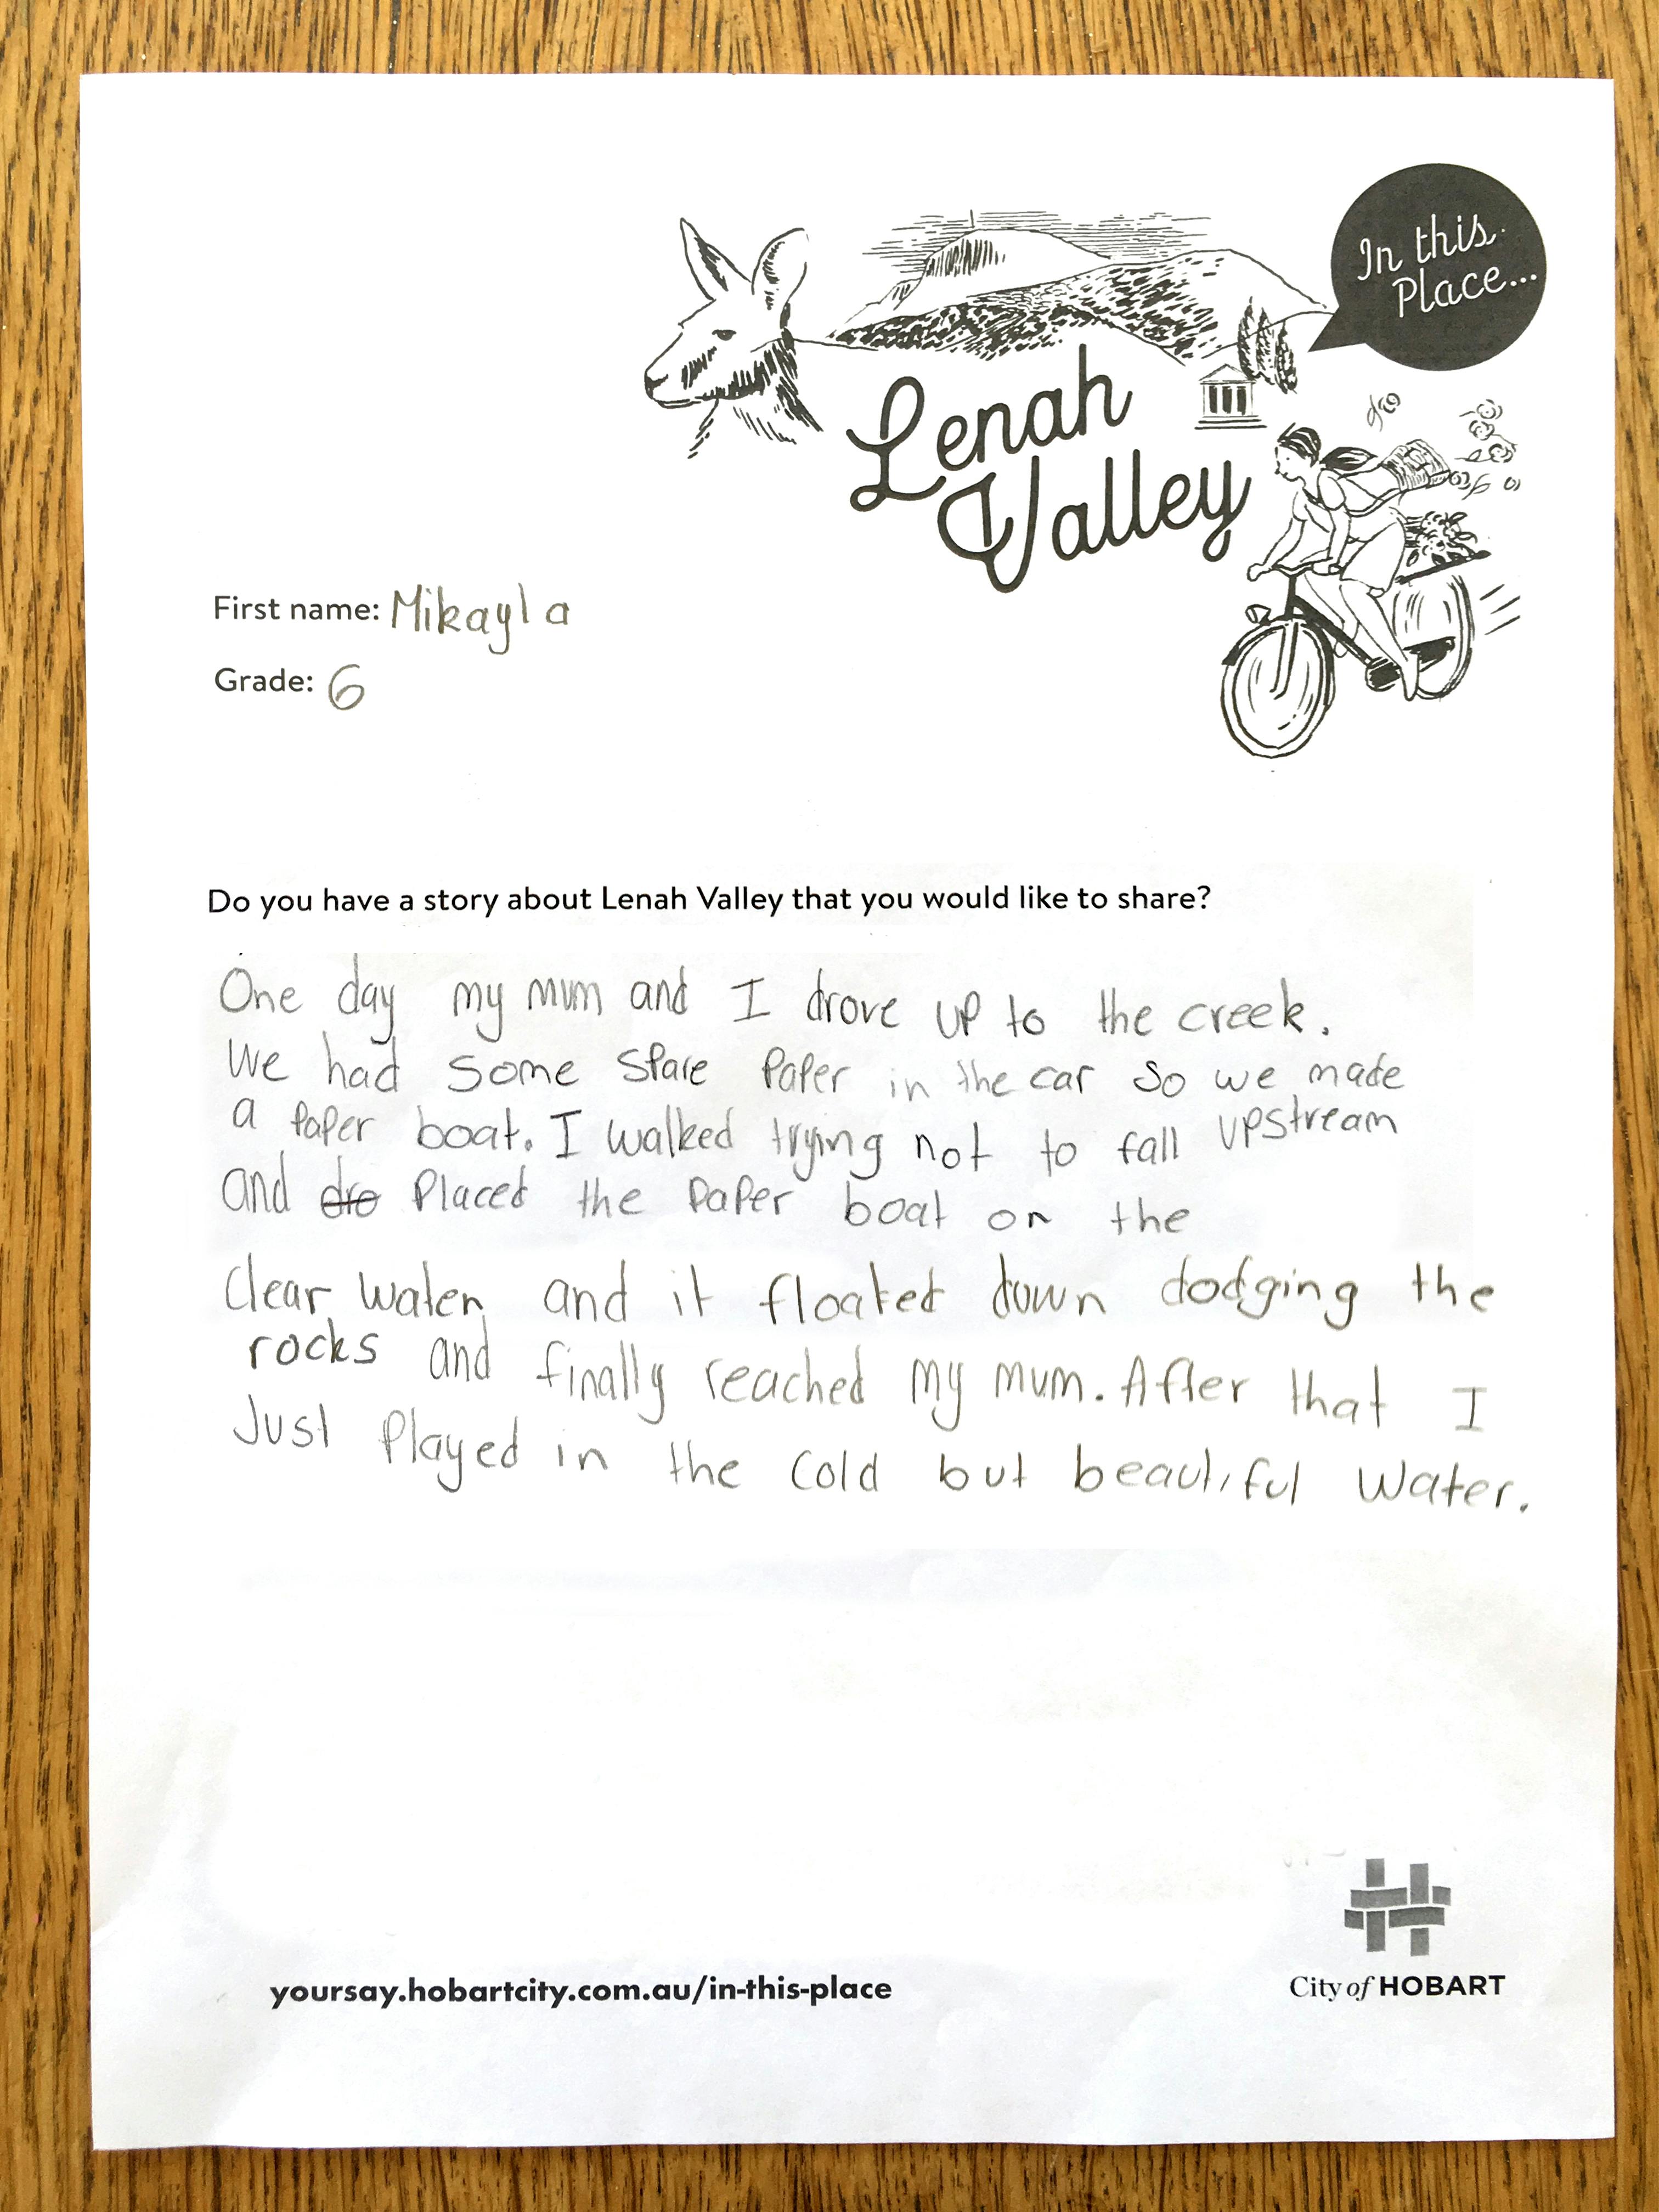 In this
Place...
Lenah
Valley
First name: Mikayla
Grade: 6
Do you have a story about Lenah Valley that you would like to share?
One day my mum and I drove up to the creek.
We had some spare paper in the car so we made
a paper boat. I walked trying not to fall upstream
and dro placed the paper boat on the
clear water, and it floated down dodging the
rocks and finally reached my mum. After that I
Just played in the cold but beautiful water.
yoursay.hobartcity.com.au/in-this-place
City of HOBART